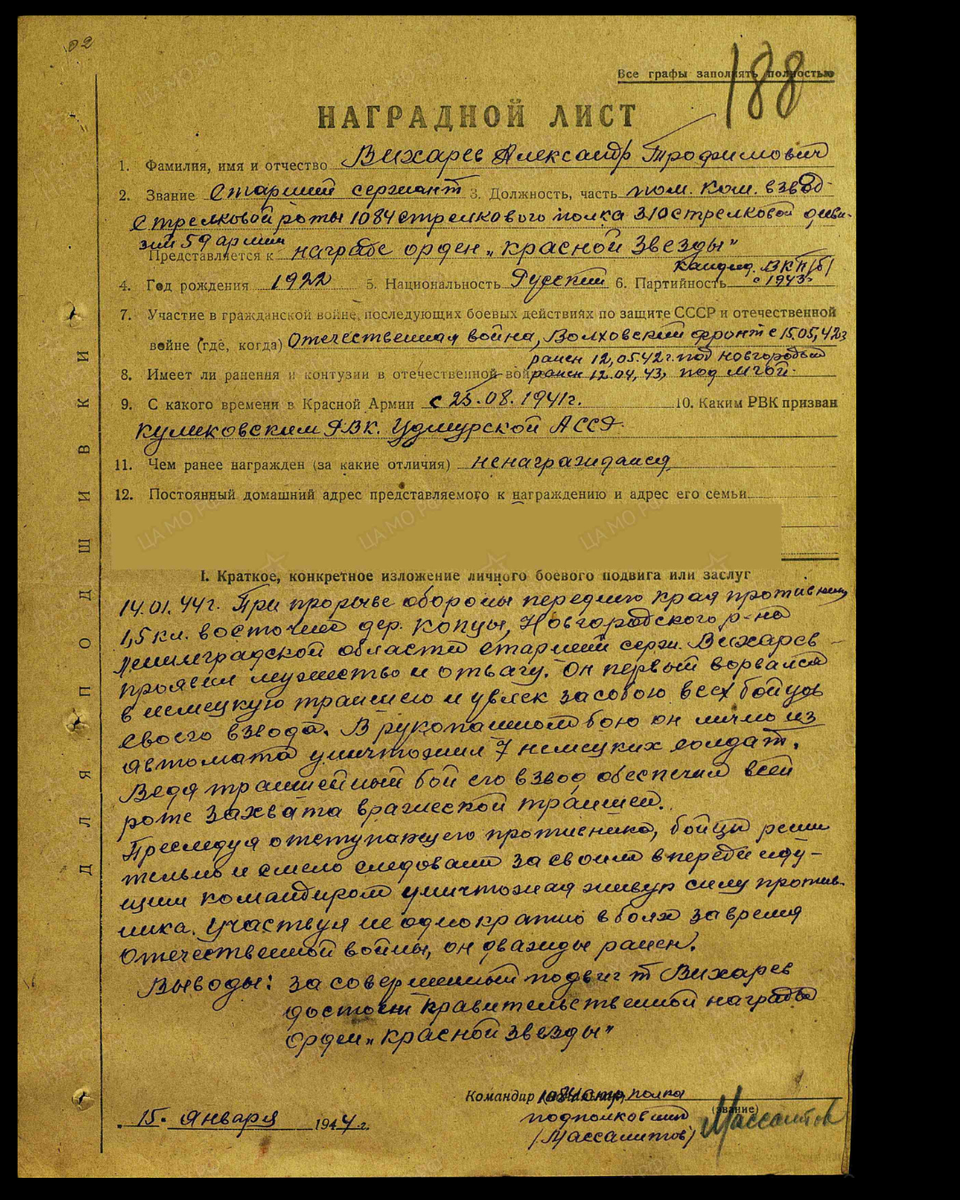 02
Все графы заполнять полностью
188
НАГРАДНОЙ ЛИСТ
1. Фамилия, имя и отчество Вихарев Александр Трофимович
2. Звание Старший сержант 3. Должность, часть пом. ком. взвод-
Стрелковой роты 1084 стрелкового полка 310 стрелковой диви-
зии 59 армии
Представляется к награде орден „Красной Звезды"
4. Год рождения 1922 5. Национальность Русский 6. Партийность Кандид. ВКП/б/ с 1943г
7. Участие в гражданской войне, последующих боевых действиях по защите СССР и отечественной
войне (где, когда) Отечественная война, Волховский фронт с 15.05.42г
ранен 12.05.42г. под Новгородом
8. Имеет ли ранения и контузии в отечественной войне ранен 12.04.43, под Мгой.
9. С какого времени в Красной Армии с 25.08.1941г. 10. Каким РВК призван
Куликовским РВК. Удмурской АССР.
11. Чем ранее награжден (за какие отличия) ненаграждался
12. Постоянный домашний адрес представляемого к награждению и адрес его семьи
I. Краткое, конкретное изложение личного боевого подвига или заслуг
14.01.44г. При прорыве обороны переднего края противника
1,5 кл. восточней дер. Копцы, Новгородского р-на
Ленинградской области старший серж. Вихарев
проявил мужество и отвагу. Он первый ворвался
в немецкую траншею и увлек за собою всех бойцов
своего взвода. В рукопашном бою он лично из
автомата уничтожил 7 немецких солдат.
Ведя траншейный бой его взвод обеспечил всей
роте захвата вражеской траншеи.
Преследуя отступающего противника, бойцы реши
тельно и смело следовали за своим впереди иду-
щим командиром уничтожая живую силу против-
ника. Участвуя не однократно в боях за время
Отечественной войны, он дважды ранен.
Выводы: за совершенный подвиг т Вихарев
достоин правительственной награды
Орден „Красной Звезды"
Командир 1084 стр. полка
подполковник
(звание)
(Массалитов) Массалитов
15. января 1944 г.
ДЛЯ ПОДШИВКИ
ЦА МО РФ